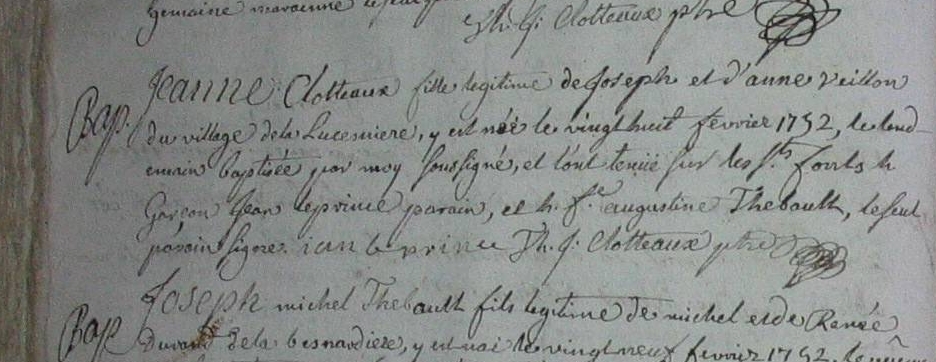 Th. J. Clotteaux ptre
Bap. Jeanne Clotteaux fille legitime de Joseph et d'anne Veillon
du village dela Lucemiere, y est néé le vingt huit février 1752, le lend-
emain baptisée par moy soussigné, et l'ont tenüe sur les sts. fonts h
Garçon Jean leprince parain, et h. f. augustine Thebault, le seul
parain signez. ian le prince Th. J. Clotteaux ptre
Bap Joseph michel Thebault fils legitime de michel et de Renée
durand dela besnardiere, y est nai le vingt neuf fevrier 1752, le